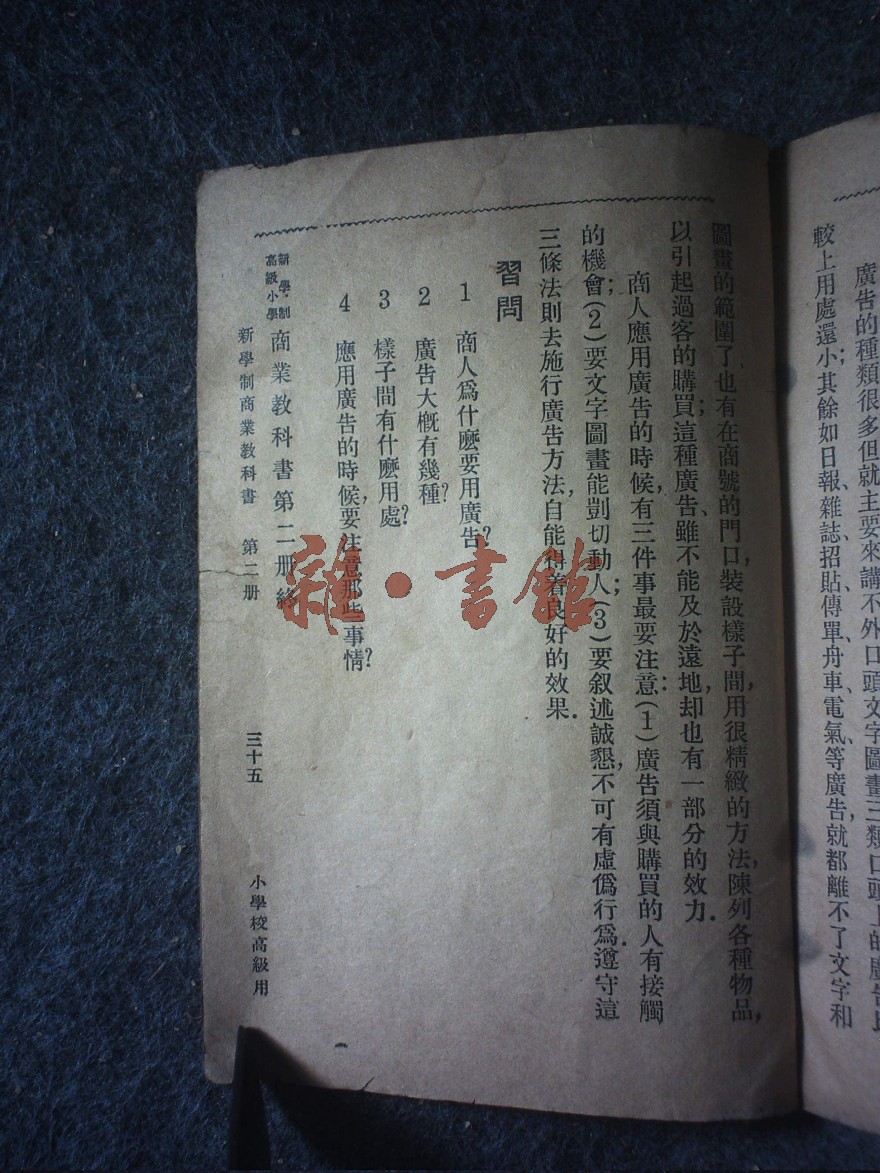 廣告的種類很多但就主要來講不外口頭文字圖畫三類口頭上的廣告比
較上用處還小;其餘如日報、雜誌、招貼、傳單、舟車、電氣、等廣告,就都離不了文字和
圖畫的範圍了也有在商號的門口,裝設樣子間,用很精緻的方法,陳列各種物品,
以引起過客的購買;這種廣告、雖不能及於遠地,却也有一部分的效力.
商人應用廣告的時候,有三件事最要注意:(1)廣告須與購買的人有接觸
的機會;(2)要文字圖畫能剴切動人;(3)要叙述誠懇,不可有虛僞行爲.遵守這
三條法則去施行廣告方法,自能得着良好的效果.
習問
1 商人爲什麽要用廣告?
2 廣告大概有幾種?
3 樣子間有什麽用處?
4 應用廣告的時候,要注意那些事情?
新學制高級小學 商業教科書第二册終
新學制商業教科書 第二册 三十五 小學校高級用
雜·書館